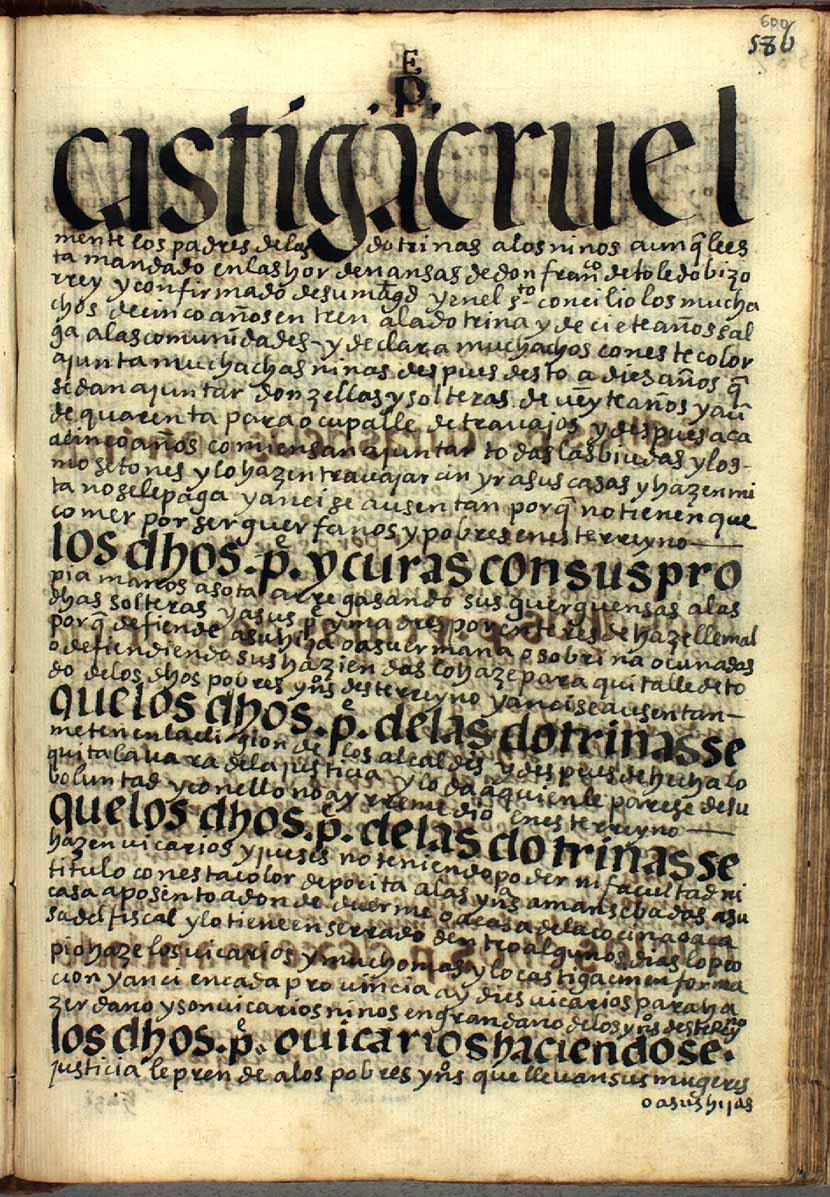 600
586
E
.P.
castiga cruel
mente los padres de las dotrinas a los niños aunq̃ lees
ta mandado en las hordenansas de don franco de toledo bizo
rrey y confirmado de su magd y en el sto concilio los mucha
chos de cinco años entren a la dotrina y de ciete años sal
ga a las comunidades - y declara muchachos con este color
ajunta muchachas niñas despues desto a dies años q̃
sedan ajuntar donzellas y solteras de ueynte años y aũ
de quarenta para ocupalle de trauajos y despues aca
a cinco años comiensan ajuntar todas las biudas y los
mosetones y lo hazen trauajar cin yr a sus casas y hazen mi
ta no se le paga y anci se ausentan porq̃ no tienen que
comer por ser guerfanos y pobres en este rreyno
los dhos. pe. y curas con sus pro
pia manos asota arregasando sus guerguensas a las
dhas solteras y a sus pe y madres por entereses de hazelle mal
porq̃ defiende a su hija o a su ermana o sobrina o cuñadas
o defiendiendo sus haziendas lo haze para quitalle de to
do de los dhos pobres yns deste rreyno y anci se ausentan
que los dhos. pe. de las dotrinas se
meten en la eligion de los alcaldes y despues de hecha lo
quita la uara de la justicia y lo da a quien le parese de su
boluntad y con ello no ay rremedio en este rreyno
que los dhos. pe. de las dotrinas se
hazen uicarios y jueses no teniendo poder ni facultad ni
titulo con esta color depocita a las yns amansebadas a su
casa aposento adonde duerme o a casa de la cocina o a ca
sa del fiscal y lo tiene enserrado dentro algunos dias lo pro
pio haze los uicarios y mucho mas y lo castiga cin en forma
cion y anci en cada prouincia ay dies uicarios para ha
zer daño y son uicarios niños en gran daño de los yns deste rreyno
los dhos. pe. o uicarios haciendose.
justicia le prende a los pobres yns que lleuan sus mugeres
o a sus hijas